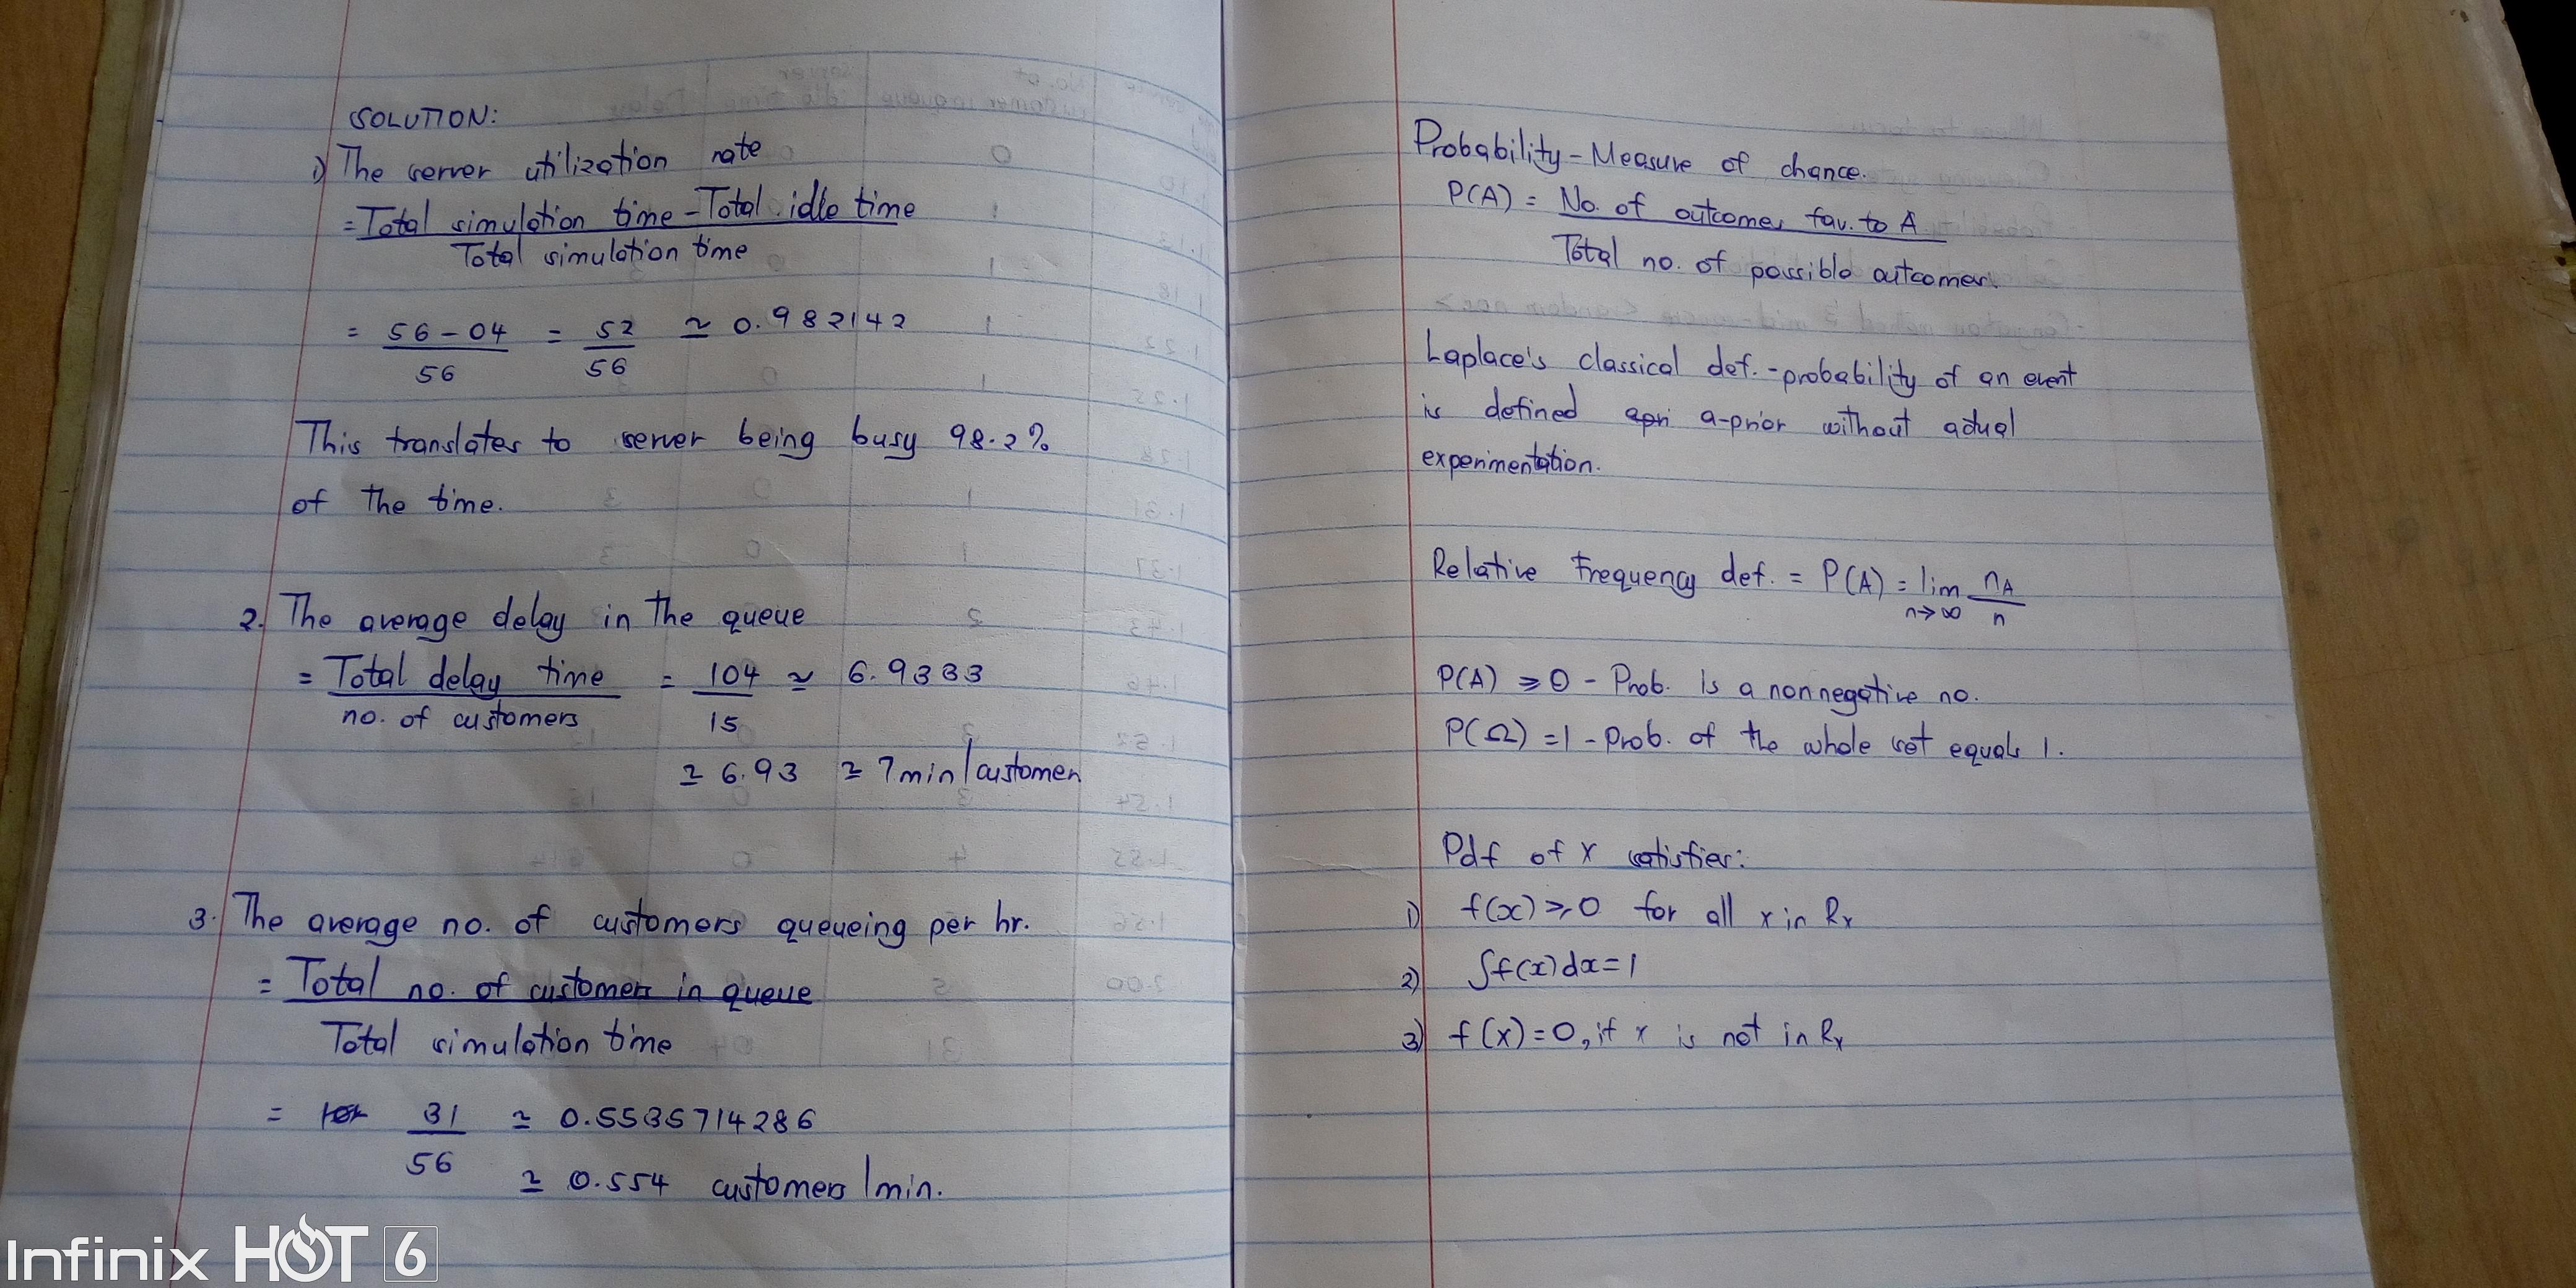 SOLUTION:
i) The server utilization rate
= Total simulation time - Total idle time
Total simulation time
= 56 - 04 = 52 ≃ 0.982142
56 56
This translates to server being busy 98.2%
of the time.
2. The average delay in the queue
= Total delay time = 104 ≃ 6.9333
no. of customers 15
≃ 6.93 ≃ 7min/customer
3. The average no. of customers queueing per hr.
= Total no. of customers in queue
Total simulation time
= 31 ≃ 0.5535714286
56
≃ 0.554 customers /min.
Infinix HOT 6
Probability - Measure of chance.
P(A) = No. of outcomes fav. to A
Total no. of possible outcomes.
Laplace's classical def. - probability of an event
is defined apri a-prior without actual
experimentation.
Relative Frequency def. = P(A) = lim nA
n→∞ n
P(A) ⩾ 0 - Prob. is a nonnegative no.
P(Ω) = 1 - Prob. of the whole set equals 1.
Pdf of X satisfies:
1) f(x) ⩾ 0 for all x in Rx
2) ∫f(x)dx = 1
3) f(x) = 0, if x is not in Rx